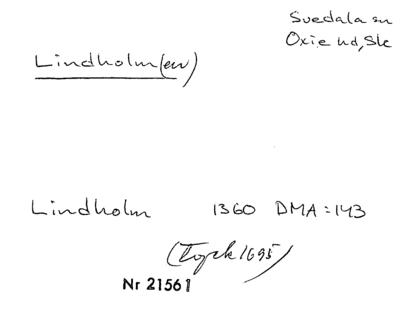 Svedala sn
Oxie hd, Sk
Lindholm(en)
Lindholm 1360 DMA:143
1695)
Nr 21561